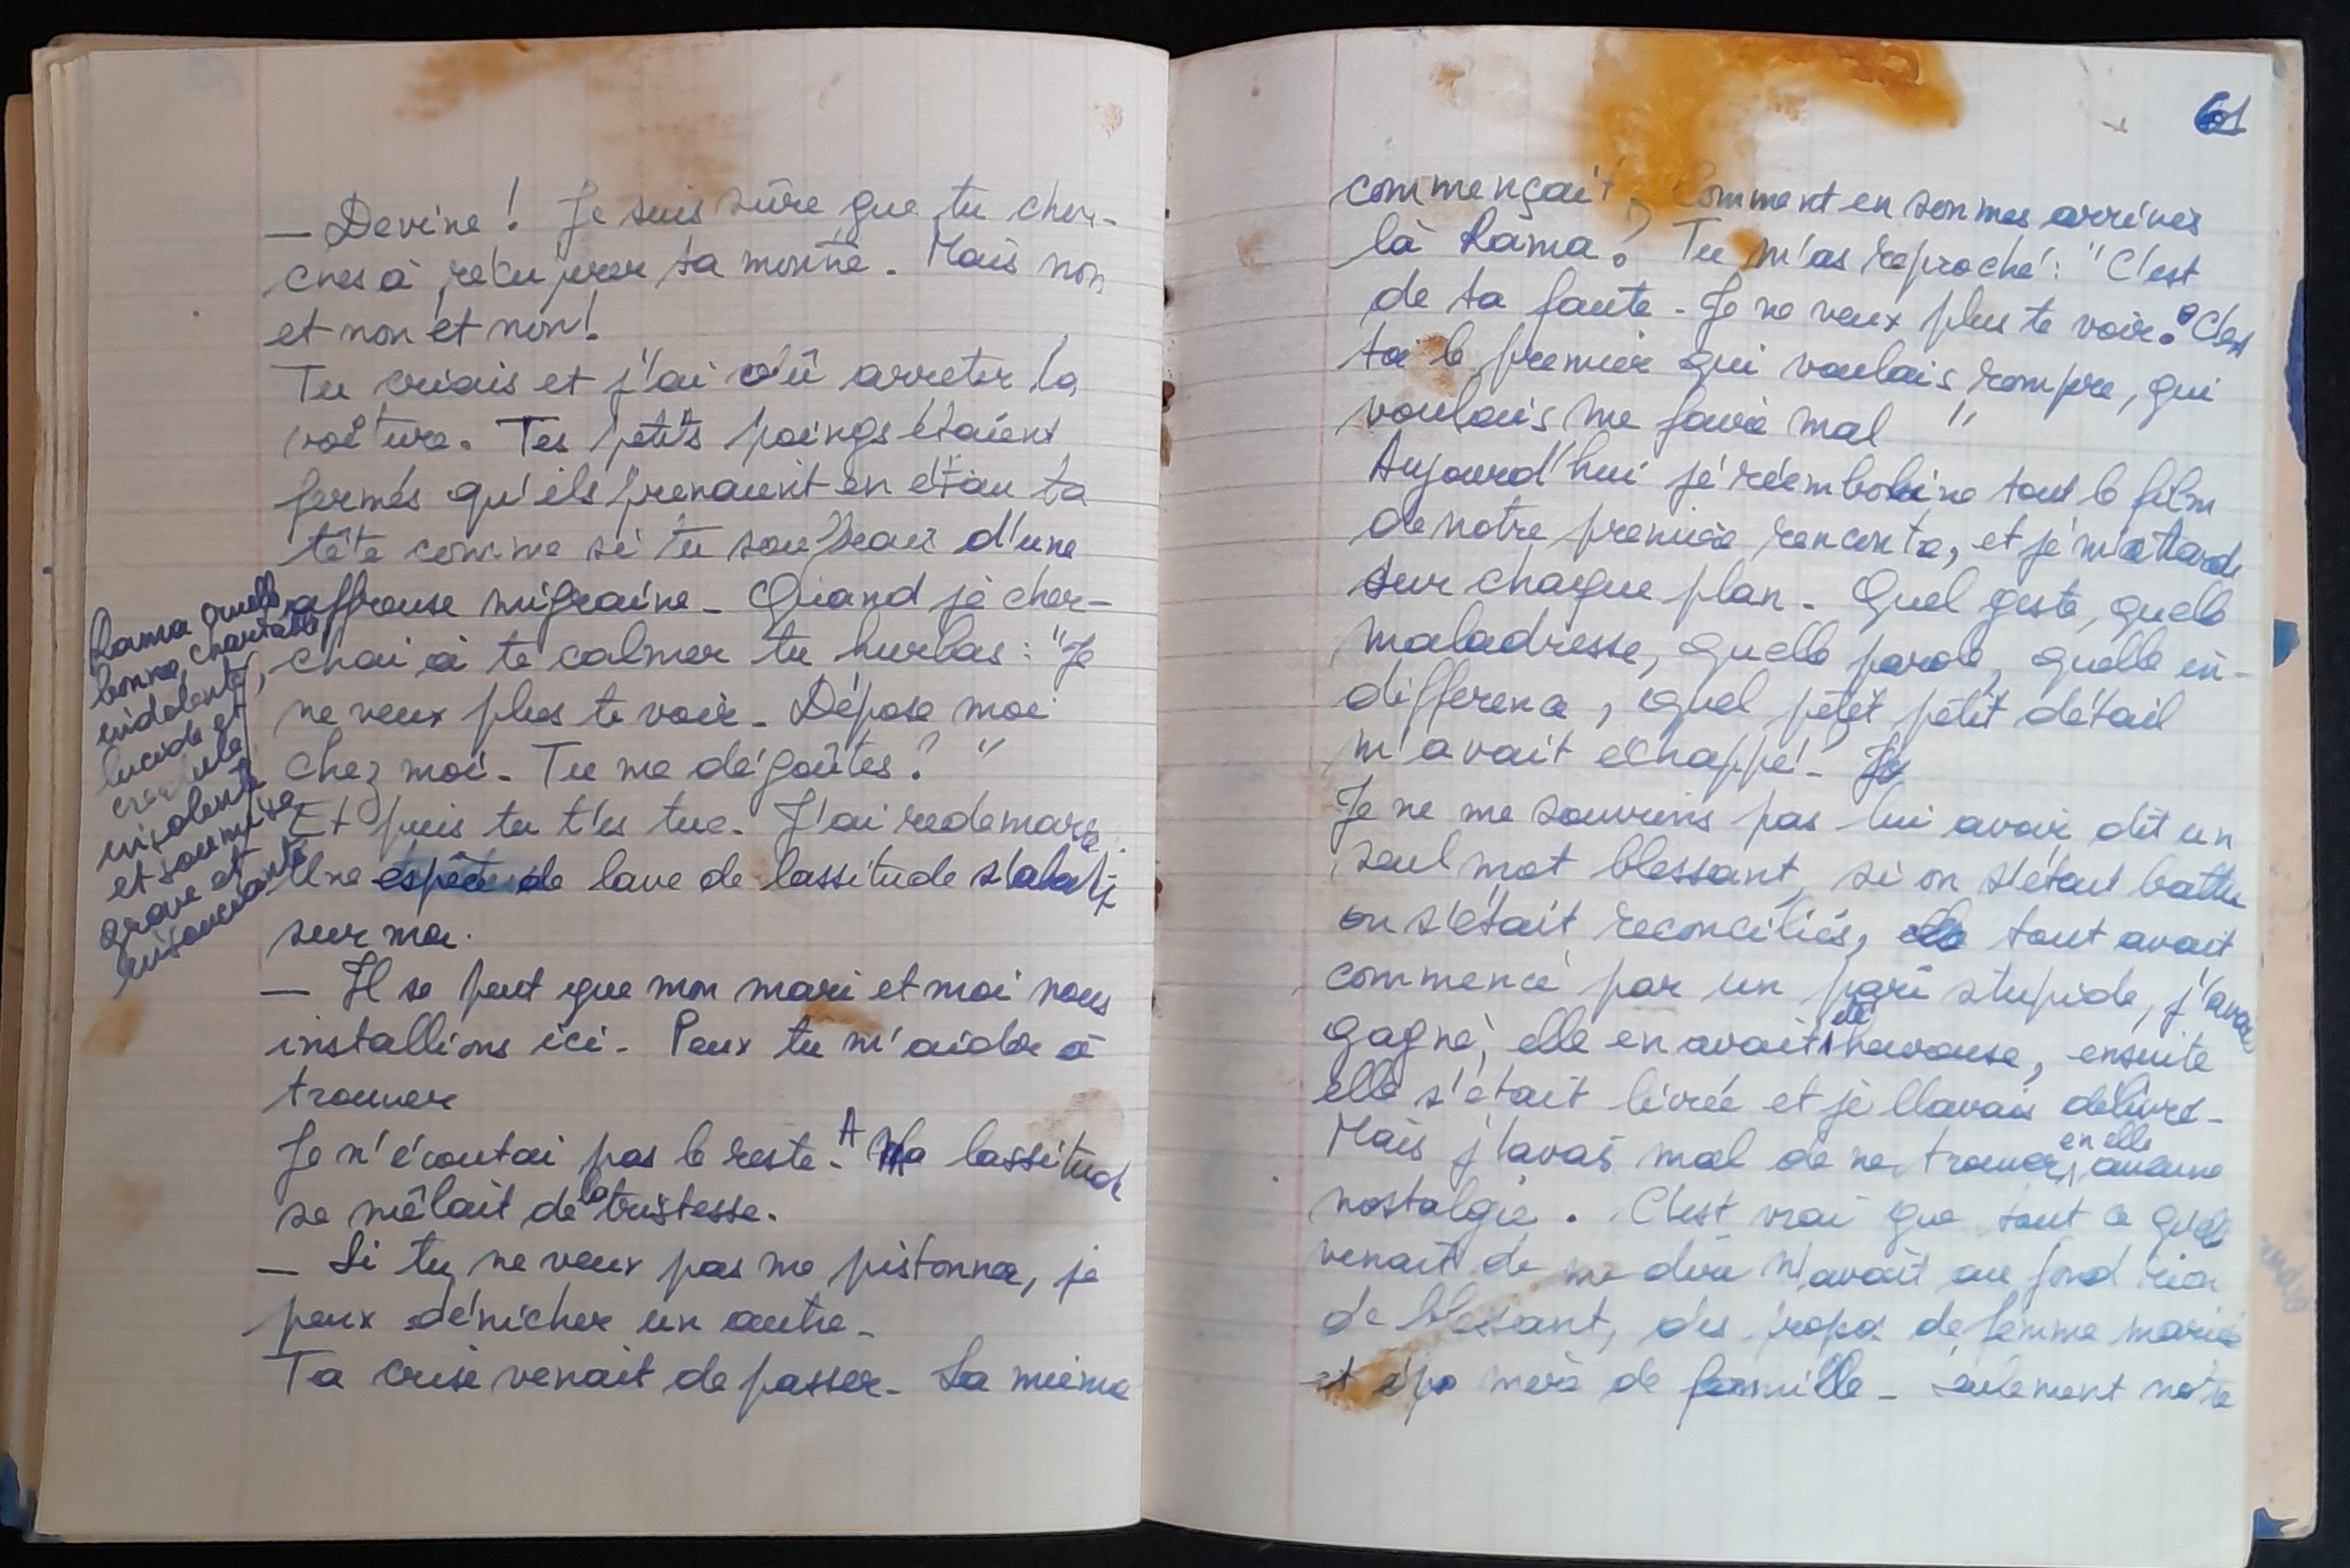 — Devine ! Je suis sûre que tu cher-
ches à récuperer ta montre. Mais non
et non et non !
Tu criais et j'ai dû arreter la
voiture. Tes petits poings étaient
fermés qu'ils prenaient en étau ta
tête comme si tu souffrais d'une
affreuse migraine - Quand je cher-
chai à te calmer tu hurlas : "Je
ne veux plus te voir - Dépose moi
chez moi - Tu me dégoûtes ! "
Et puis tu t'es tue. J'ai redemarré.
Une espèce de lave de lassitude s'abattit
sur moi.
— Il se peut que mon mari et moi nous
installions ici - Peux tu m'aider à
trouver
Je n'écoutai pas le reste - A Ma lassitude
se mêlait de la tristesse.
— Si tu ne veux pas me pistonner, je
peux dénicher un autre -
Ta crise venait de passer - La mienne
Rama cruelle
bonne, chantante,
indolente,
lucide et
crédule
insolente
et soumise
grave et
insouciante
61
commençait, Comment en sommes arrivés
là Rama ? Tu m'as reproché : "C'est
de ta faute - Je ne veux plus te voir. C'est
toi le premier qui voulais rompre, qui
voulais me faire mal "
Aujourd'hui je réembobine tout le film
de notre première rencontre, et je m'attarde
sur chaque plan - Quel geste, quelle
maladresse, quelle parole, quelle in-
difference, quel petit petit détail
m'avait échappé - Je
Je ne me souviens pas lui avoir dit un
seul mot blessant, si on s'était battu
on s'était reconciliés, elle tout avait
commencé par un pari stupide, j'avais
gagné, elle en avait été heureuse, ensuite
elle s'était livrée et je l'avais délivrée -
Mais j'avais mal de ne trouver en elle aucune
nostalgie. C'est vrai que tout ce qu'elle
venait de me dire n'avait au fond rien
de blessant, des propos de femme mariée
et mère de famille - seulement notre